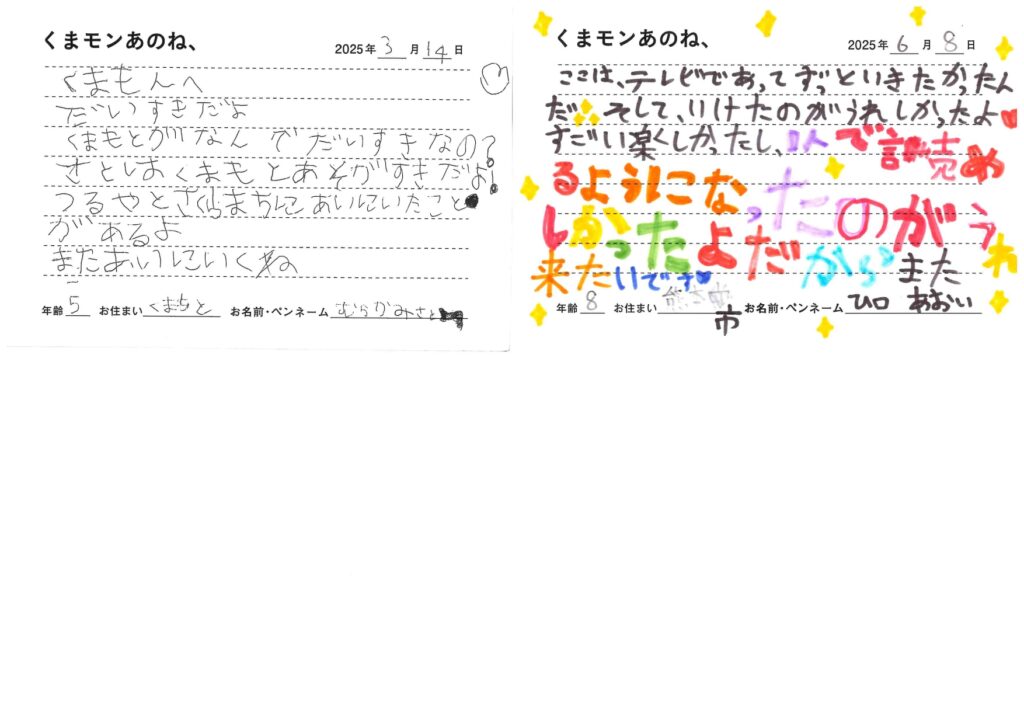 くまモンあのね、
2025年 3月 14日
くまもんへ
だいすきだよ
くまもとがなんでだいすきなの?
さとしはくまもとあそがすきだよ!
つるやとさくらまちにあいにいたこと
があるよ
またあいにいくね
年齢 5 お住まい くまもと お名前・ペンネーム むらかみさと
くまモンあのね、
2025年 6月 8日
ここは、テレビであってずっといきたかったん
だ そして、いけたのがうれしかったよ
すごい楽しかったし、1人で読め
るようになったのがう
れしかったよだからまた
来たいです
年齢 8 お住まい 熊本市 お名前・ペンネーム ひロ あおい